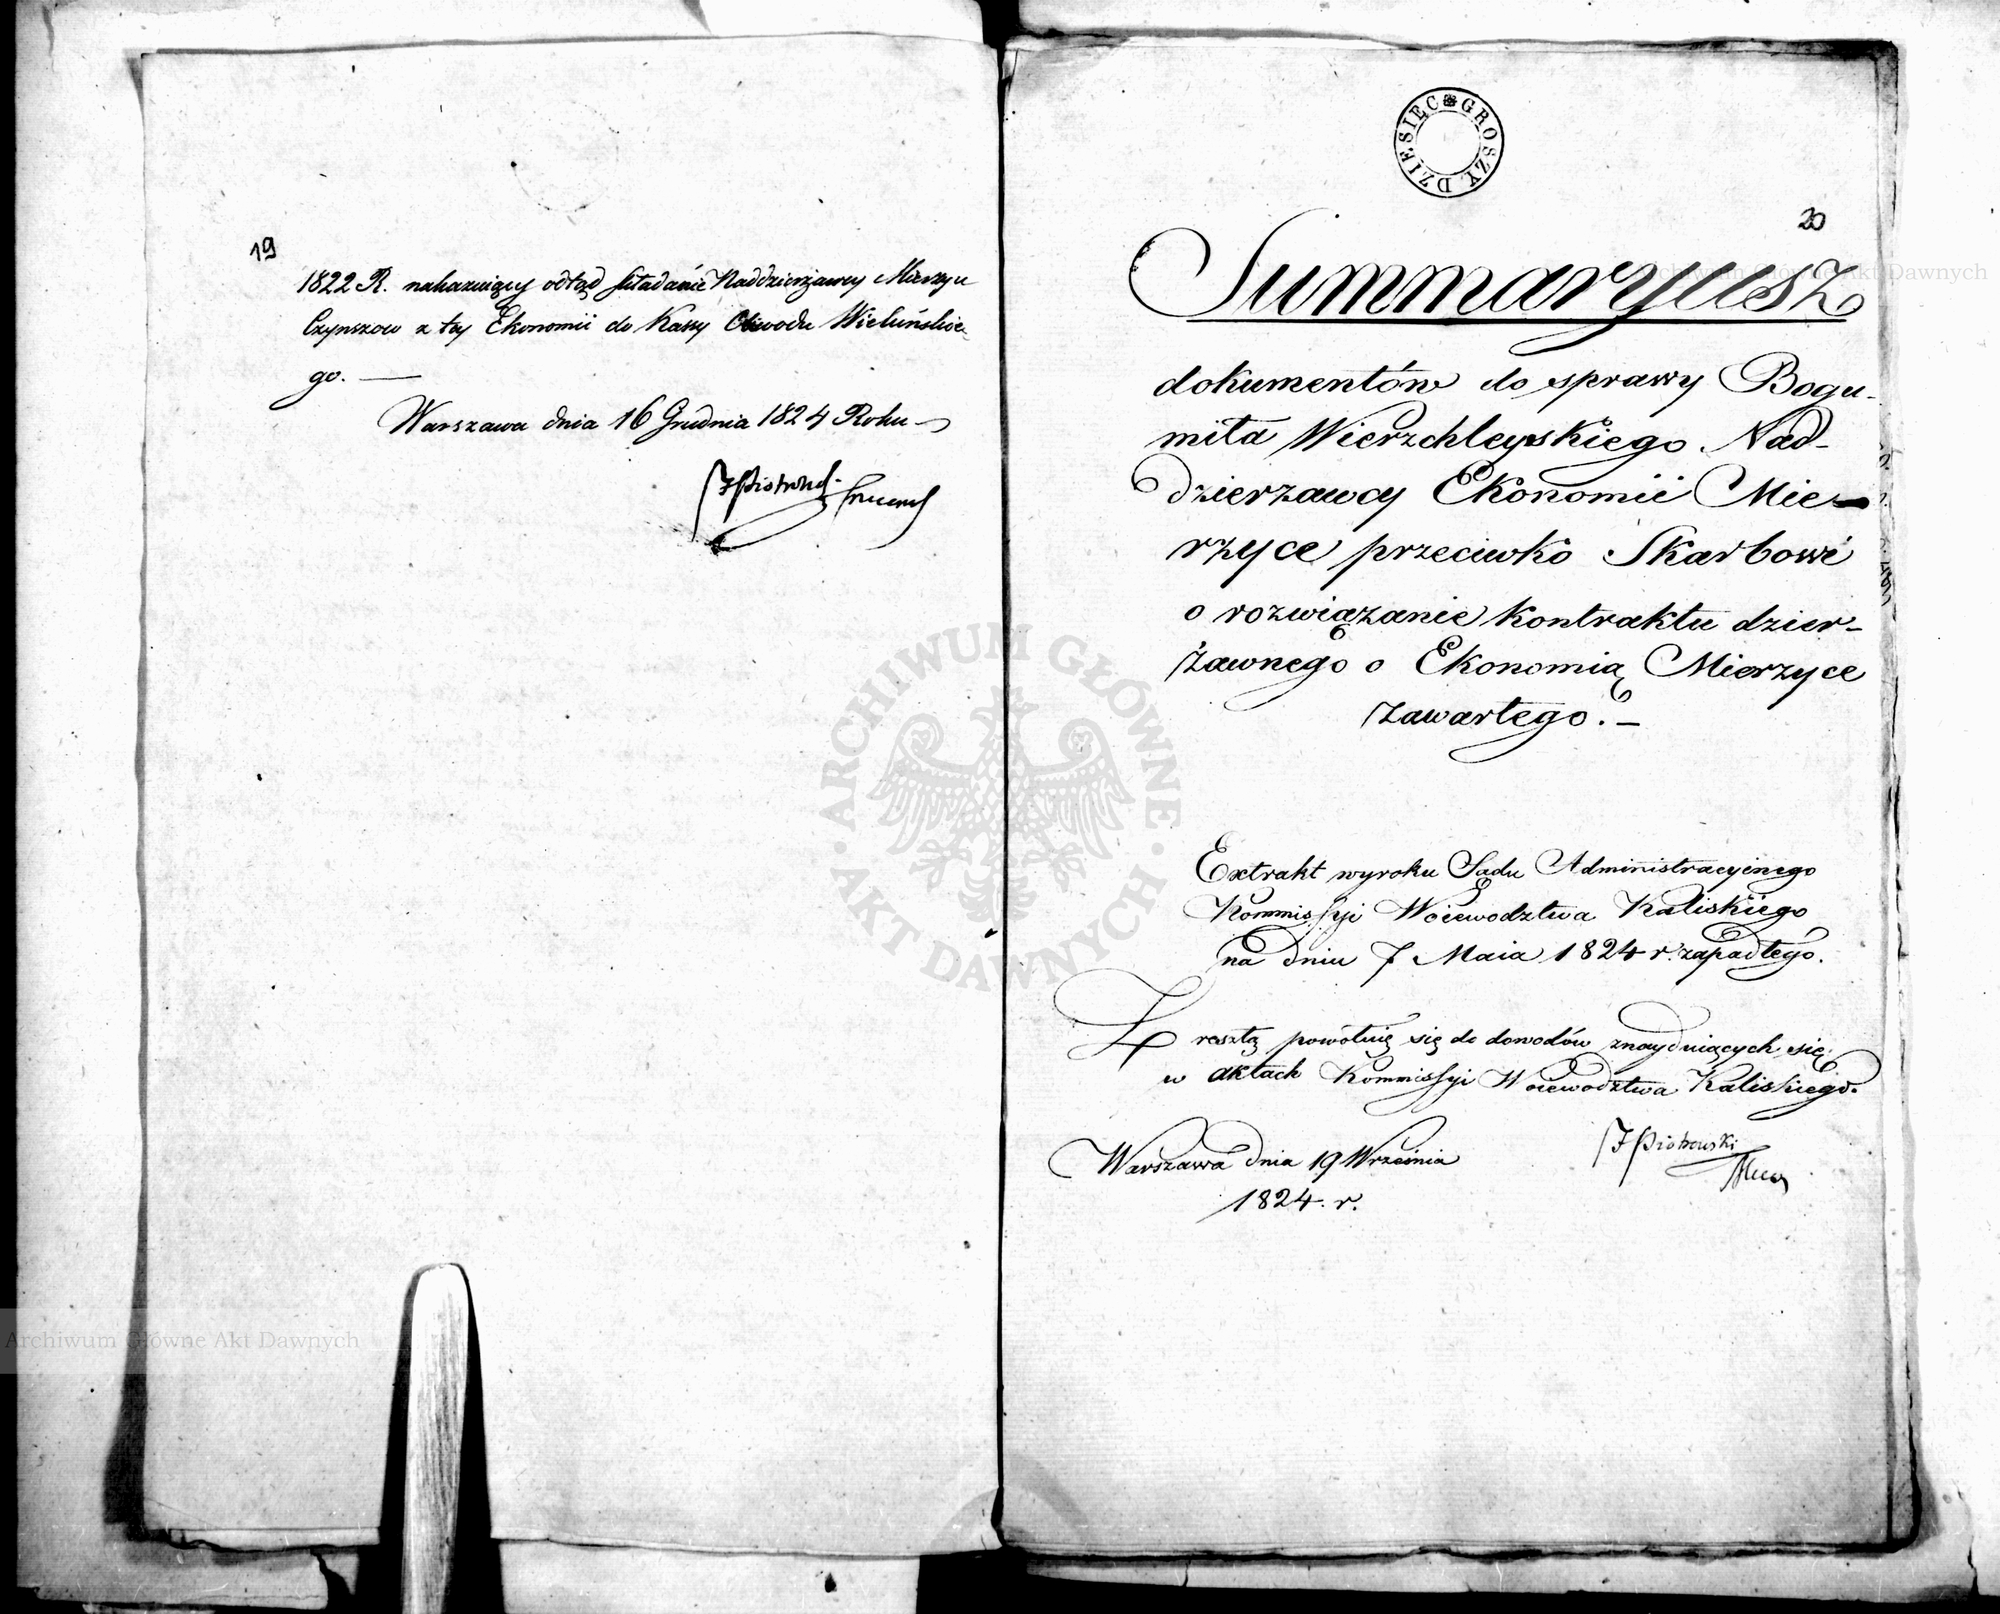 19
1822 R. nakazuiący odtąd składanie Naddzierżawcy Mierzyc
Czynszow z tey Ekonomii do Kassy Obwodu Wieluńskie-
go. —
Warszawa dnia 16 Grudnia 1824 Roku
JPiotrowski
DZIESIĘC GROSZY
20
Summaryusz
dokumentów do sprawy Bogu-
miła Wierzchleyskiego Nad-
dzierzawcy Ekonomii Mie-
rzyce przeciwko Skarbowi
o rozwiązanie kontraktu dzier-
żawnego o Ekonomią Mierzyce
zawartego. —
Extrakt wyroku Sądu Administracyinego
Kommissyi Woiewodztwa Kaliskiego
na dniu 7 Maia 1824 r. zapadłego.
Z resztą powołuię się do dowodów znayduiących się
w aktach Kommissyi Woiewodztwa Kaliskiego.
Warszawa dnia 19 Września
1824. r.
JPiotrowski
ARCHIWUM GŁÓWNE · AKT DAWNYCH ·
Archiwum Główne Akt Dawnych
Archiwum Główne Akt Dawnych